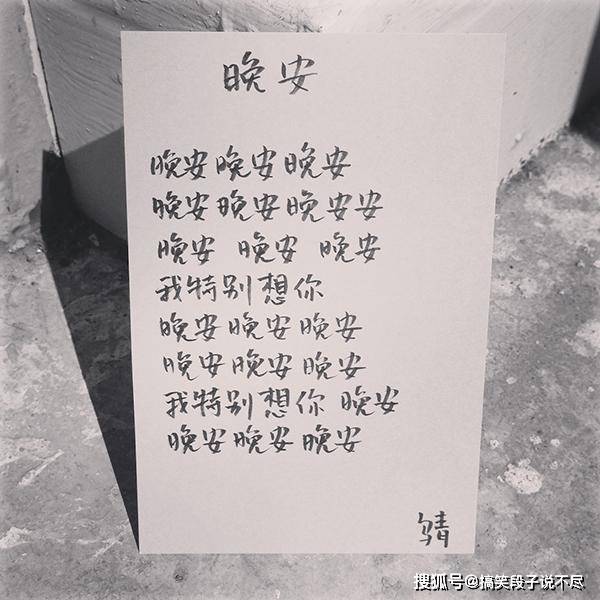 晚安
晚安晚安晚安
晚安晚安晚安安
晚安 晚安 晚安
我特别想你
晚安晚安晚安
晚安晚安晚安
我特别想你 晚安
晚安晚安晚安
乌青
搜狐号@搞笑段子说不尽